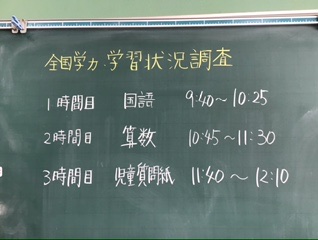 全国学力・学習状況調査
1時間目 国語 9:40～10:25
2時間目 算数 10:45～11:30
3時間目 児童質問紙 11:40～12:10